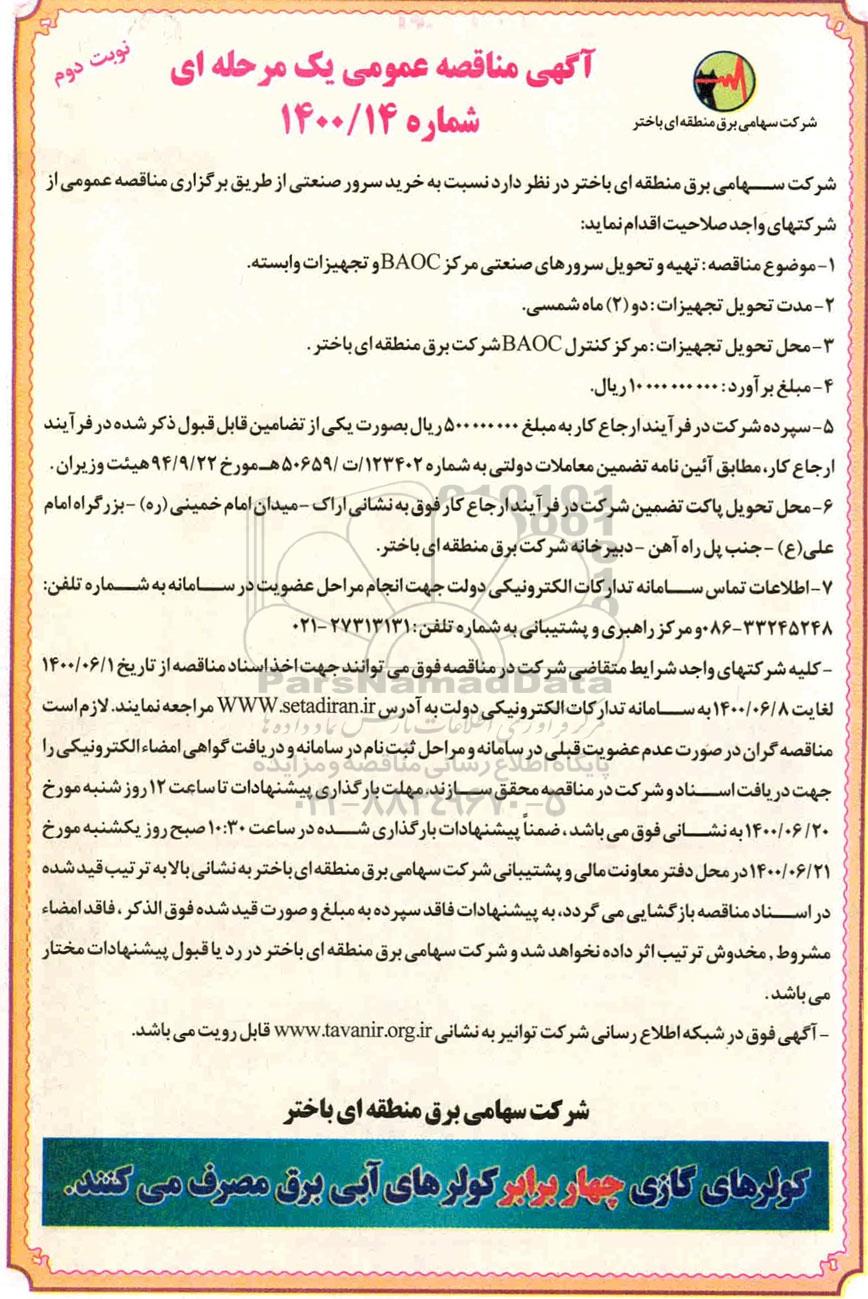 آگهی مناقصه عمومی یک مرحله ای
شماره ۱۴۰۰/۱۴
نوبت دوم
شرکت سهامی برق منطقه ای باختر
شرکت سهامی برق منطقه ای باختر در نظر دارد نسبت به خرید سرور صنعتی از طریق برگزاری مناقصه عمومی از
شرکتهای واجد صلاحیت اقدام نماید:
۱- موضوع مناقصه: تهیه و تحویل سرورهای صنعتی مرکز BAOC و تجهیزات وابسته.
۲- مدت تحویل تجهیزات: دو (۲) ماه شمسی.
۳- محل تحویل تجهیزات: مرکز کنترل BAOC شرکت برق منطقه ای باختر.
۴- مبلغ برآورد: ۱۰۰۰۰۰۰۰۰۰۰ ریال.
۵- سپرده شرکت در فرآیند ارجاع کار به مبلغ ۵۰۰۰۰۰۰۰۰ ریال بصورت یکی از تضامین قابل قبول ذکر شده در فرآیند
ارجاع کار، مطابق آئین نامه تضمین معاملات دولتی به شماره ۱۲۳۴۰۲/ت /۵۰۶۵۹هـ مورخ ۹۴/۹/۲۲ هیئت وزیران.
۶- محل تحویل پاکت تضمین شرکت در فرآیند ارجاع کار فوق به نشانی اراک - میدان امام خمینی (ره) - بزرگراه امام
علی(ع) - جنب پل راه آهن - دبیرخانه شرکت برق منطقه ای باختر.
۷- اطلاعات تماس سامانه تدارکات الکترونیکی دولت جهت انجام مراحل عضویت در سامانه به شماره تلفن:
۰۸۶-۳۳۲۴۵۲۴۸ و مرکز راهبری و پشتیبانی به شماره تلفن: ۲۷۳۱۳۱۳۱ -۰۲۱
- کلیه شرکتهای واجد شرایط متقاضی شرکت در مناقصه فوق می توانند جهت اخذ اسناد مناقصه از تاریخ ۱۴۰۰/۰۶/۱
لغایت ۱۴۰۰/۰۶/۸ به سامانه تدارکات الکترونیکی دولت به آدرس WWW.setadiran.ir مراجعه نمایند. لازم است
مناقصه گران در صورت عدم عضویت قبلی در سامانه و مراحل ثبت نام در سامانه و دریافت گواهی امضاء الکترونیکی را
جهت دریافت اسناد و شرکت در مناقصه محقق سازند. مهلت بارگذاری پیشنهادات تا ساعت ۱۲ روز شنبه مورخ
۱۴۰۰/۰۶/۲۰ به نشانی فوق می باشد، ضمناً پیشنهادات بارگذاری شده در ساعت ۱۰:۳۰ صبح روز یکشنبه مورخ
۱۴۰۰/۰۶/۲۱ در محل دفتر معاونت مالی و پشتیبانی شرکت سهامی برق منطقه ای باختر به نشانی بالا به ترتیب قید شده
در اسناد مناقصه بازگشایی می گردد، به پیشنهادات فاقد سپرده به مبلغ و صورت قید شده فوق الذکر، فاقد امضاء
مشروط, مخدوش ترتیب اثر داده نخواهد شد و شرکت سهامی برق منطقه ای باختر در رد یا قبول پیشنهادات مختار
می باشد.
- آگهی فوق در شبکه اطلاع رسانی شرکت توانیر به نشانی www.tavanir.org.ir قابل رویت می باشد.
شرکت سهامی برق منطقه ای باختر
کولرهای گازی چهار برابر کولرهای آبی برق مصرف می کنند.
ParsNamadData
پایگاه اطلاع رسانی مناقصه و مزایده
۰۲۱-۸۸۳۴۹۶۷۰-۵